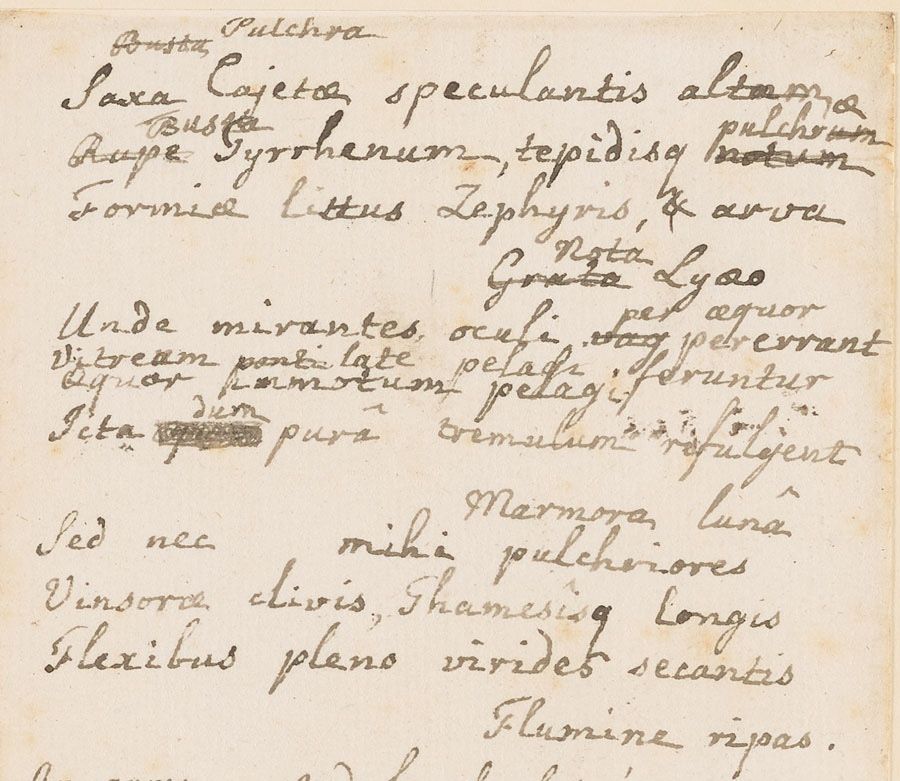 Busta Pulchra
Saxa Cajetæ speculantis altam æ
Busta pulchrum
Rupe Tyrrhenum, tepidisq notum
Formiæ littus Zephyris, & arva
Nota
Grata Lyæo
per æquor
Unde mirantes oculi vag pererrant
Vitream ponti late pelagi feruntur
Æquor immotum pelagi
dum
Icta purâ tremulum refulgent
Marmora lunâ
Sed nec mihi pulchriores
Vinsoræ clivis, Thamesîsq longis
Flexibus pleno virides secantis
Flumine ripas.